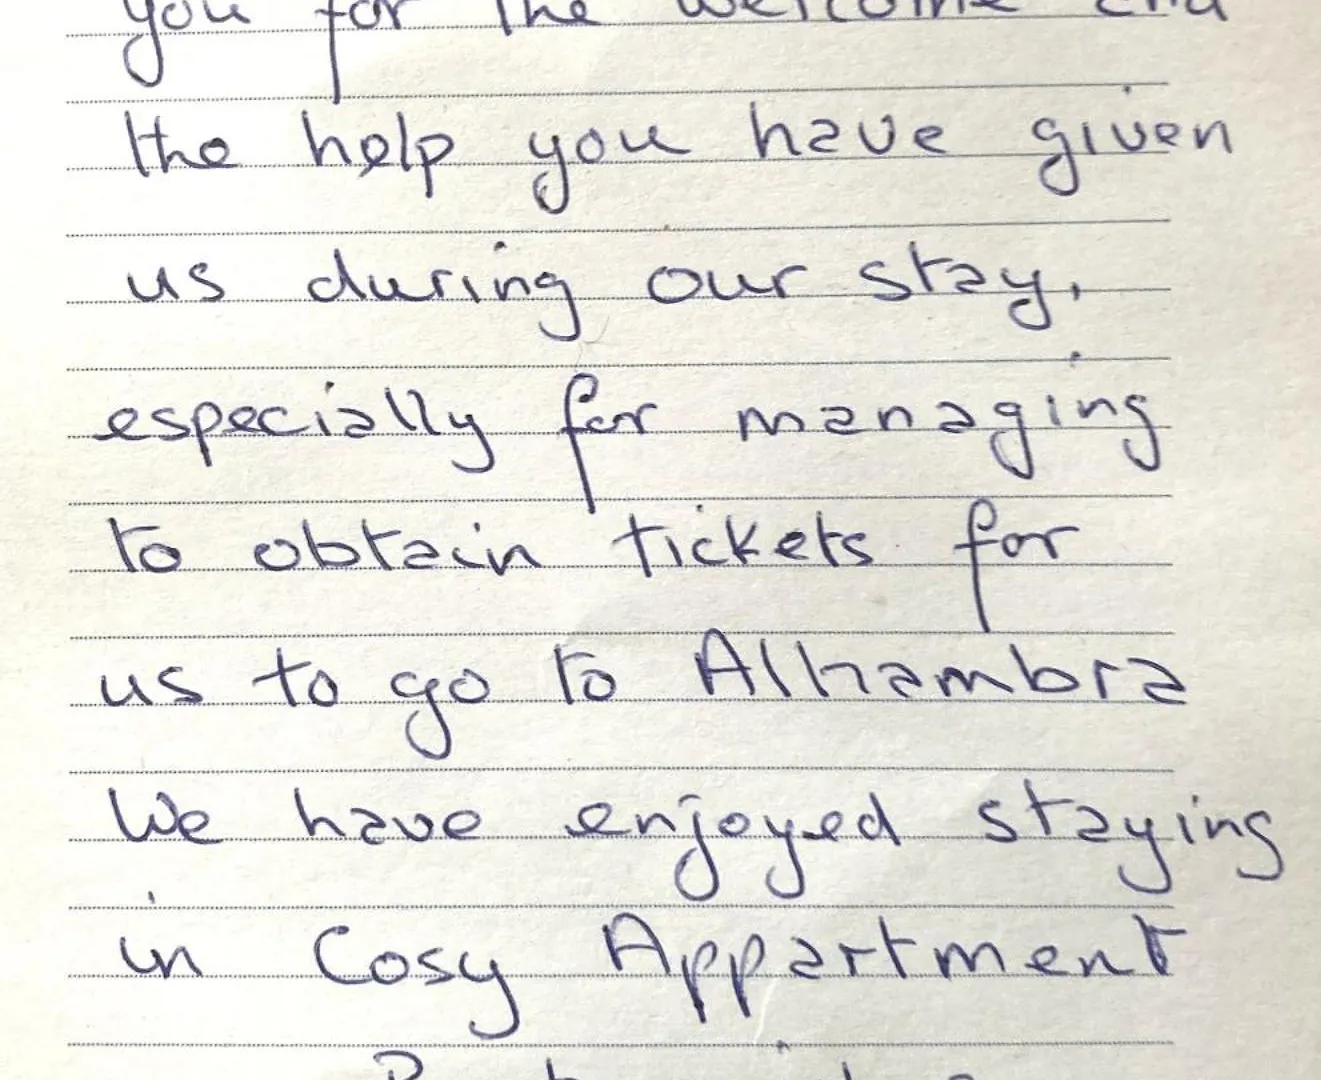 you for the welcome and
the help you have given
us during our stay,
especially for managing
to obtain tickets for
us to go to Alhambra
We have enjoyed staying
in Cosy Appartment